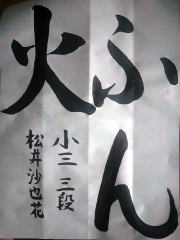 ふん
火
小三 三段
松井沙也花